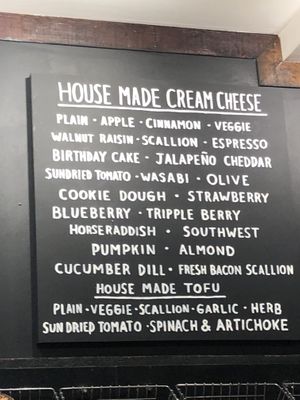 HOUSE MADE CREAM CHEESE
PLAIN · APPLE · CINNAMON · VEGGIE
WALNUT RAISIN · SCALLION · ESPRESSO
BIRTHDAY CAKE · JALAPEÑO CHEDDAR
SUNDRIED TOMATO · WASABI · OLIVE
COOKIE DOUGH · STRAWBERRY
BLUEBERRY · TRIPPLE BERRY
HORSERADDISH · SOUTHWEST
PUMPKIN · ALMOND
CUCUMBER DILL · FRESH BACON SCALLION
HOUSE MADE TOFU
PLAIN · VEGGIE · SCALLION · GARLIC · HERB
SUN DRIED TOMATO · SPINACH & ARTICHOKE